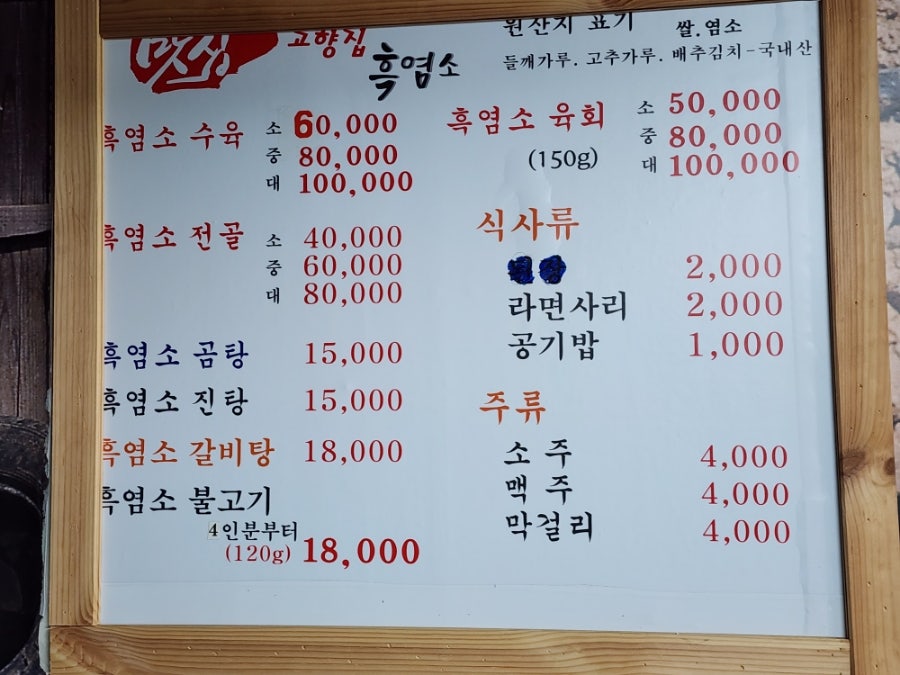 맛생 고향집
흑염소
원산지 표기 쌀.염소
들깨가루. 고추가루. 배추김치-국내산
흑염소 수육 소 60,000
중 80,000
대 100,000
흑염소 전골 소 40,000
중 60,000
대 80,000
흑염소 곰탕 15,000
흑염소 진탕 15,000
흑염소 갈비탕 18,000
흑염소 불고기
4인분부터
(120g) 18,000
흑염소 육회 소 50,000
(150g) 중 80,000
대 100,000
식사류
2,000
라면사리 2,000
공기밥 1,000
주류
소주 4,000
맥주 4,000
막걸리 4,000